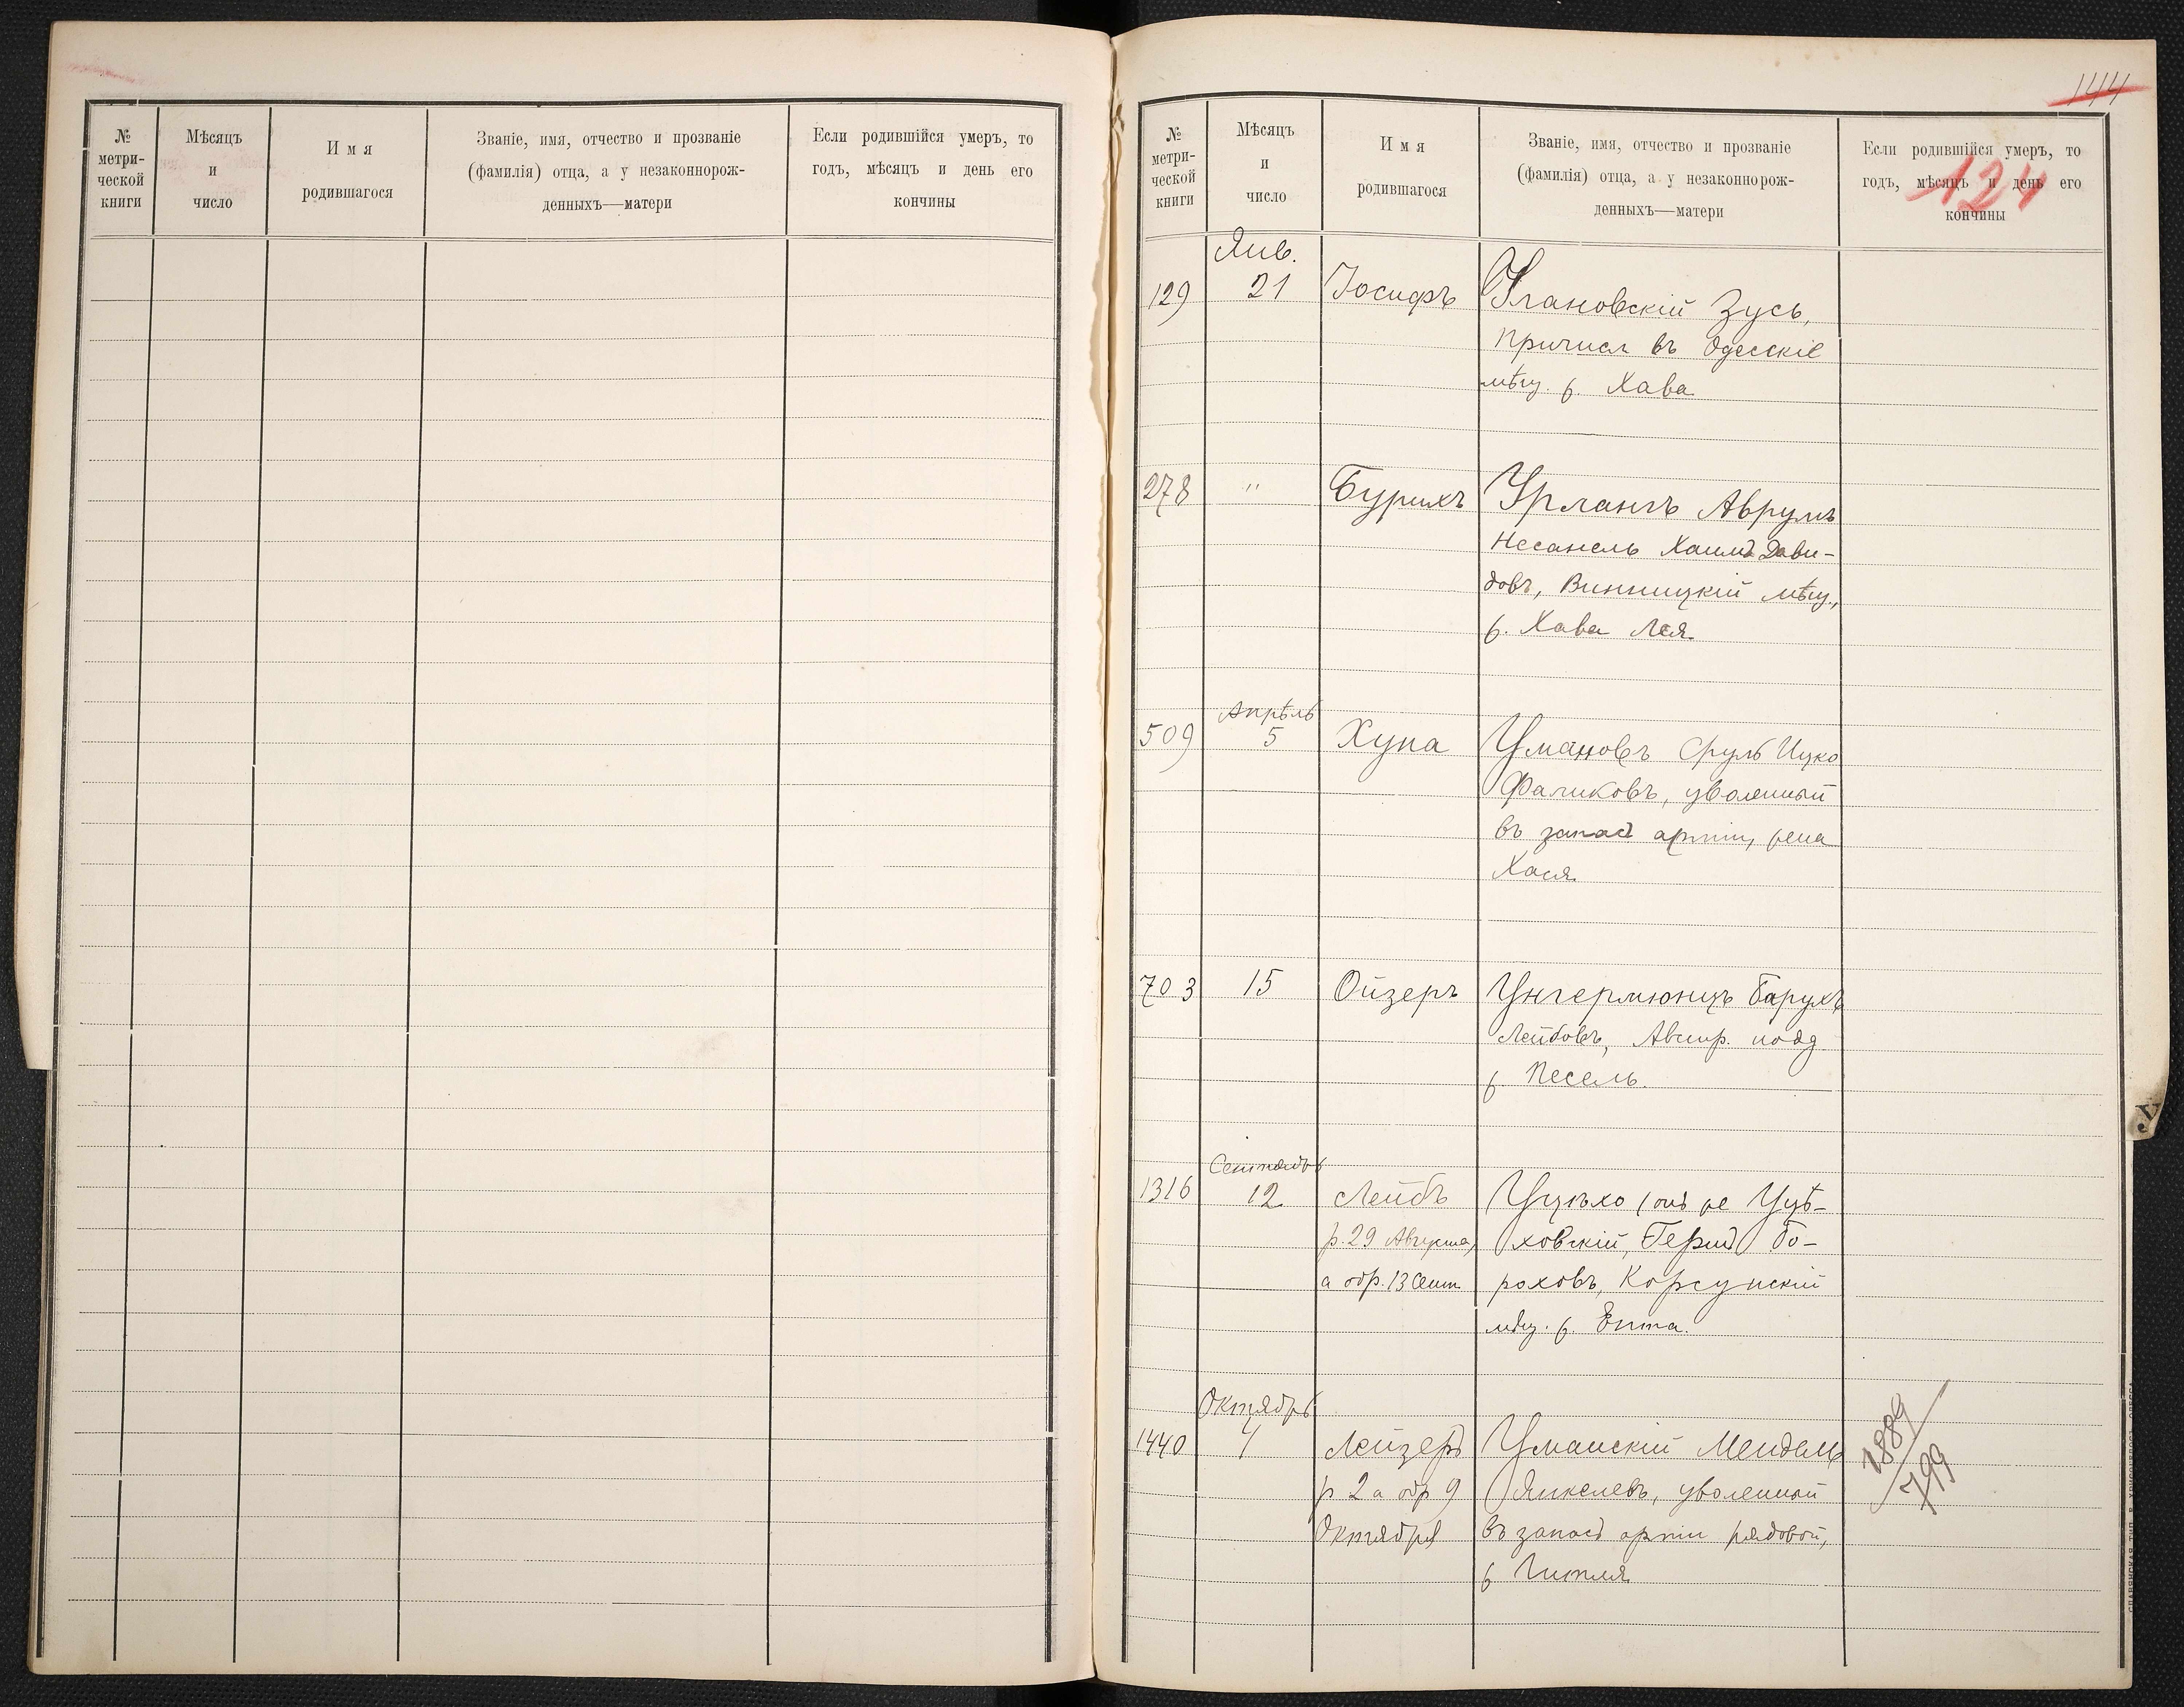 № метри- ческой книги
Мѣсяцъ и число
Имя родившагося
Званіе, имя, отчество и прозваніе
(фамилія) отца, а у незаконнорож-
денныхъ—матери
Если родившійся умеръ, то
годъ, мѣсяцъ и день его
кончины
144
№ метри- ческой книги
Мѣсяцъ и число
Имя родившагося
Званіе, имя, отчество и прозваніе
(фамилія) отца, а у незаконнорож-
денныхъ—матери
Если родившійся умеръ, то
годъ, мѣсяцъ и день его
кончины
124
Янв.
129 21 Іосифъ Улановскій Зусь,
Причисл въ Одесскіе
мѣщ. ж. Хава
278 " Бурихъ Урлангъ Аврумъ
Несанель Хаимъ Дави-
довъ, Винницкій мѣщ.,
ж. Хава Лея.
Апрѣль
509 5 Хуна Умановъ Сруль Ицко
Фаликовъ, уволенный
въ запасъ арміи, жена
Хася.
703 15 Ойзеръ Унгермюнцъ Барухъ
Лейбовъ, Австр. подд
ж. Песель.
Сентябрь
1316 12 Лейбъ Уцѣхо (онъ же Уцѣ-
р. 29 Августа, ховскій, Гершъ Бо-
а обр. 13 Сент. роховъ, Корсунскій
мѣщ. ж. Ента.
Октябрь
1440 4 Лейзеръ Уманскій Мендель
р 2 а обр 9 Янкелевъ, уволенный
Октября въ запасъ арміи рядовой,
ж Гитля
1889/799
У
СЛАВЯНСКАЯ ТИП. Н. ХРИСОГЕЛОСЪ, ОДЕССА